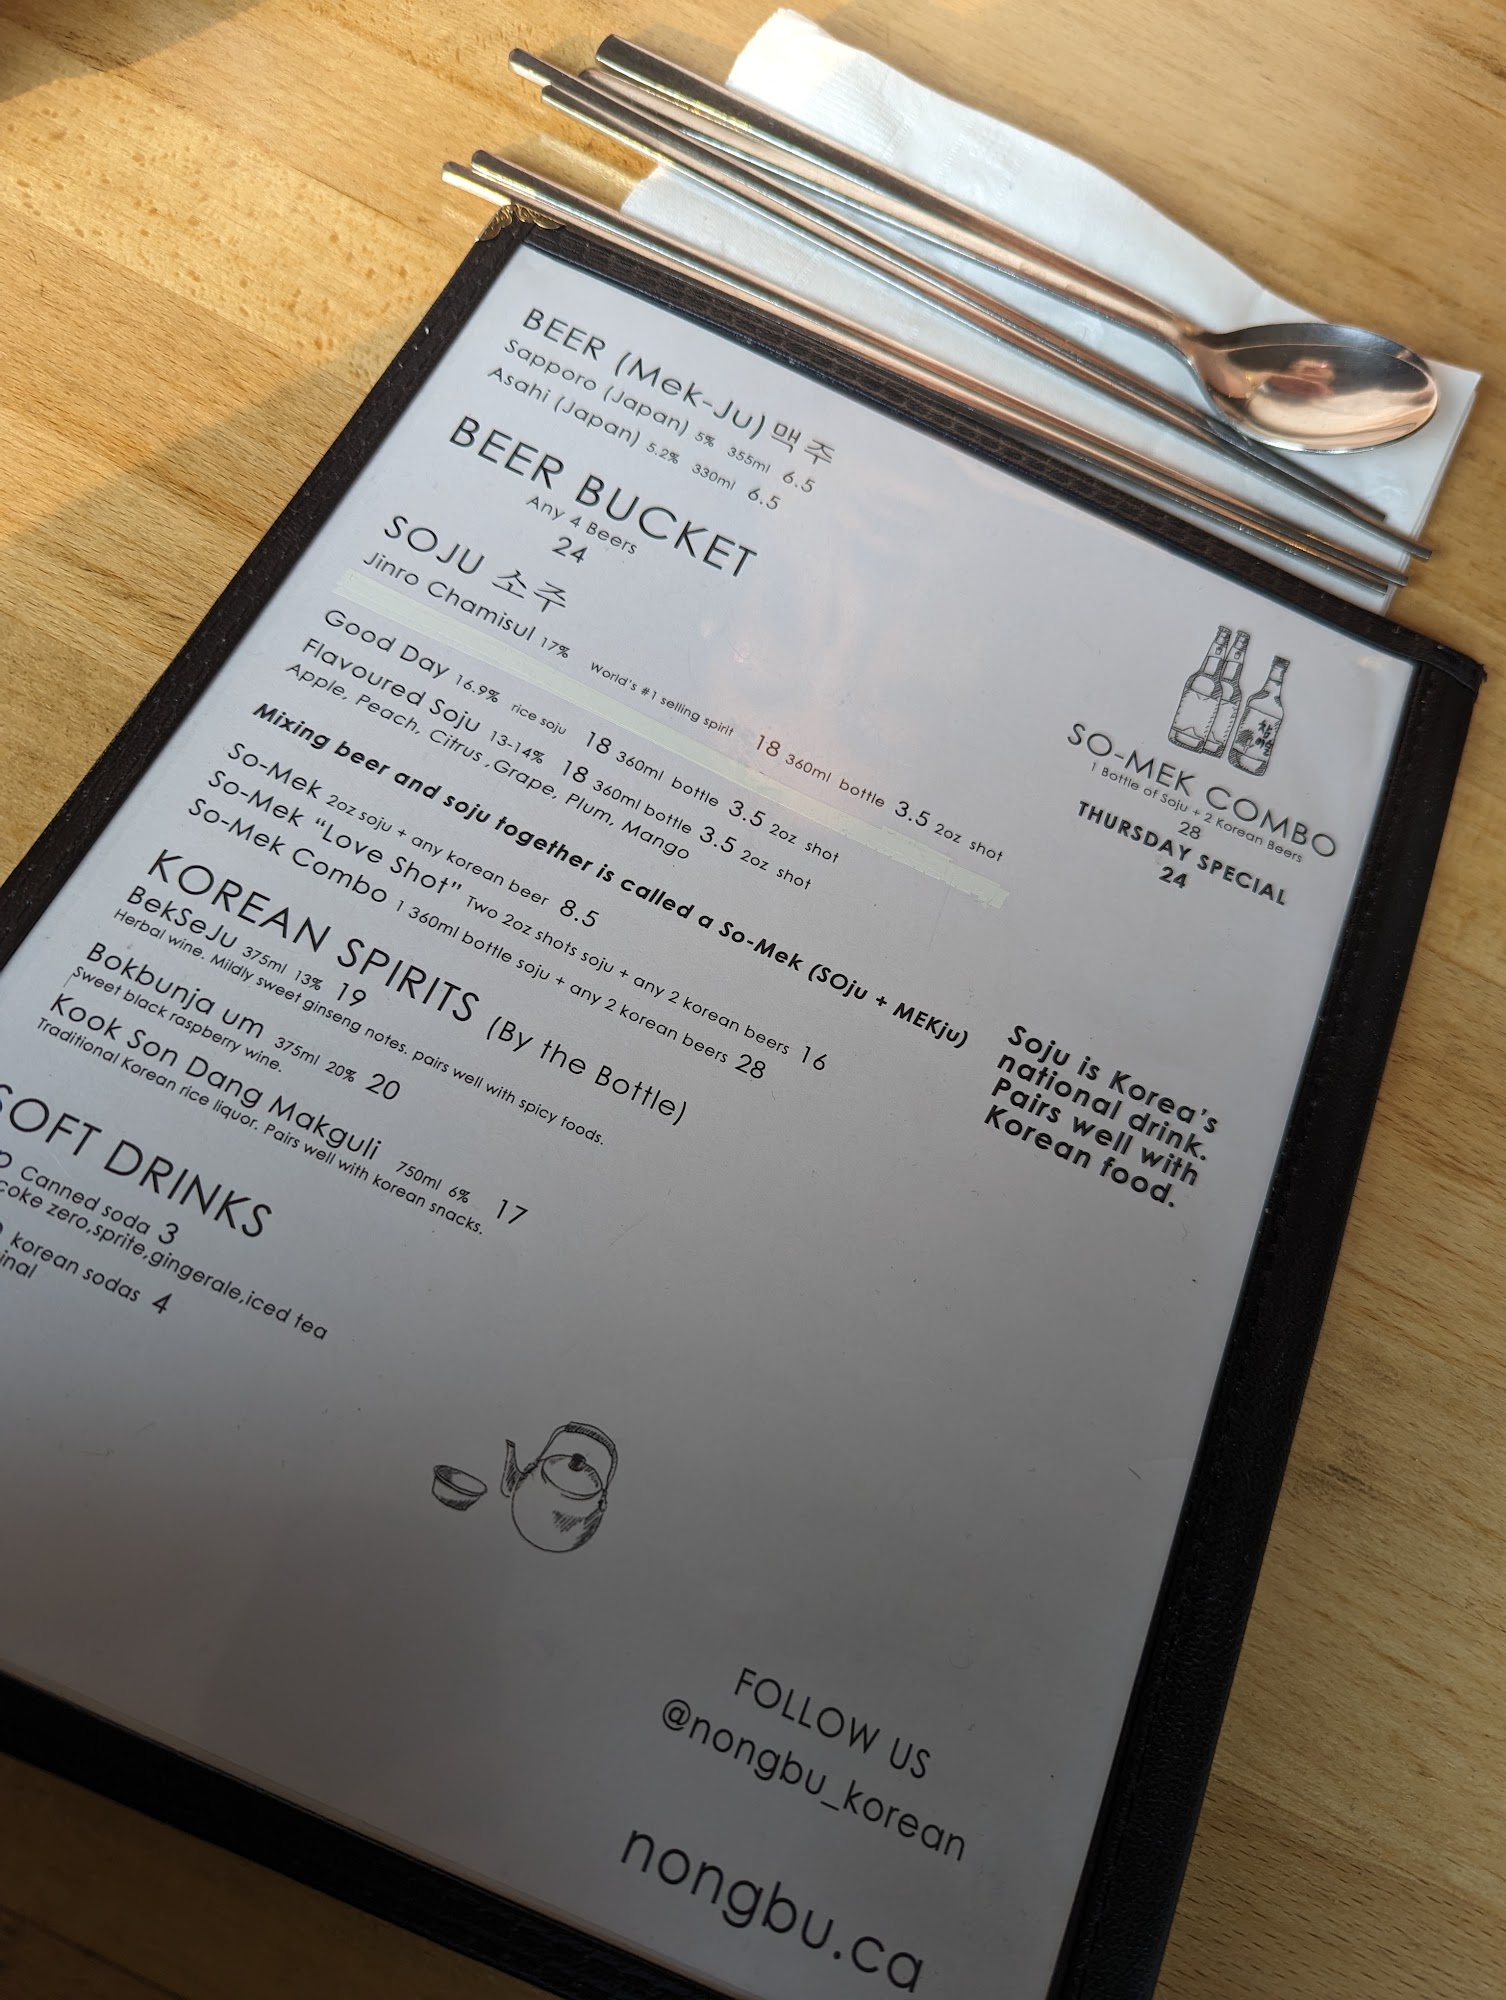 BEER (Mek-Ju) 맥주
Sapporo (Japan) 5% 355ml 6.5
Asahi (Japan) 5.2% 330ml 6.5
BEER BUCKET
Any 4 Beers
24
SOJU 소주
Jinro Chamisul 17% World's #1 selling spirit 18 360ml bottle 3.5 2oz shot
Good Day 16.9% rice soju 18 360ml bottle 3.5 2oz shot
Flavoured Soju 13-14% 18 360ml bottle 3.5 2oz shot
Apple, Peach, Citrus ,Grape, Plum, Mango
Mixing beer and soju together is called a So-Mek (SOju + MEKju)
So-Mek 2oz soju + any korean beer 8.5
So-Mek "Love Shot" Two 2oz shots soju + any 2 korean beers 16
So-Mek Combo 1 360ml bottle soju + any 2 korean beers 28
KOREAN SPIRITS (By the Bottle)
BekSeJu 375ml 13% 19
Herbal wine. Mildly sweet ginseng notes, pairs well with spicy foods.
Bokbunja um 375ml 20% 20
Sweet black raspberry wine.
Kook Son Dang Makguli 750ml 6% 17
Traditional Korean rice liquor. Pairs well with korean snacks.
SOFT DRINKS
Canned soda 3
coke zero,sprite,gingerale,iced tea
korean sodas 4
참이슬
SO-MEK COMBO
1 Bottle of Soju + 2 Korean Beers
28
THURSDAY SPECIAL
24
Soju is Korea's
national drink.
Pairs well with
Korean food.
FOLLOW US
@nongbu_korean
nongbu.ca